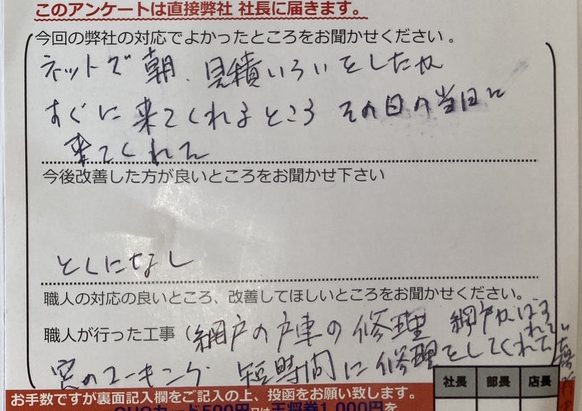 このアンケートは直接弊社 社長に届きます。
今回の弊社の対応でよかったところをお聞かせください。
ネットで朝、見積いらいをしたが
すぐに来てくれるところ その日の当日に
来てくれて
今後改善した方が良いところをお聞かせ下さい
とくになし
職人の対応の良いところ、改善してほしいところをお聞かせください。
職人が行った工事(網戸の戸車の修理 網戸がはずれて
窓のコーキング 短時間に修理をしてくれて
社長 部長 店長
お手数ですが裏面記入欄をご記入の上、投函をお願い致します。
QUOカード500円又は王将券1,000円を